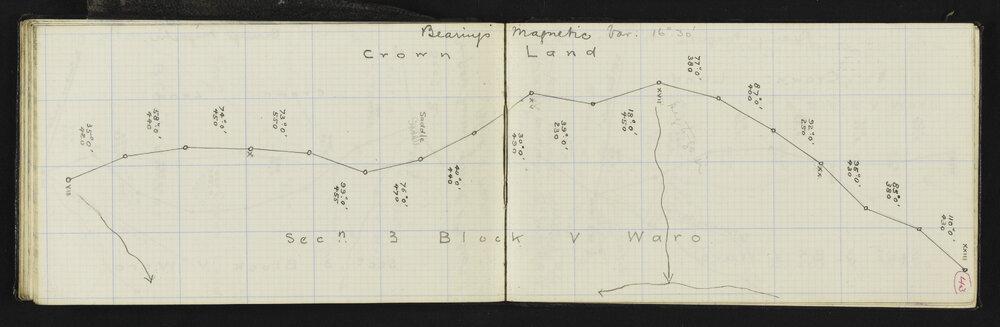 Bearings Magnetic Var: 16°30'
Crown Land
VIII
35°0'
420
58°0'
440
74°0'
450
X
73°0'
550
99°0'
455
76°0'
470
Saddle
40°0'
440
XV
30°0'
490
39°0'
230
18°0'
450
XVII
77°0'
380
87°0'
400
92°0'
250
XX
95°0'
430
85°0'
380
110°0'
430
XXIII
43
Secn 3 Block V Waro